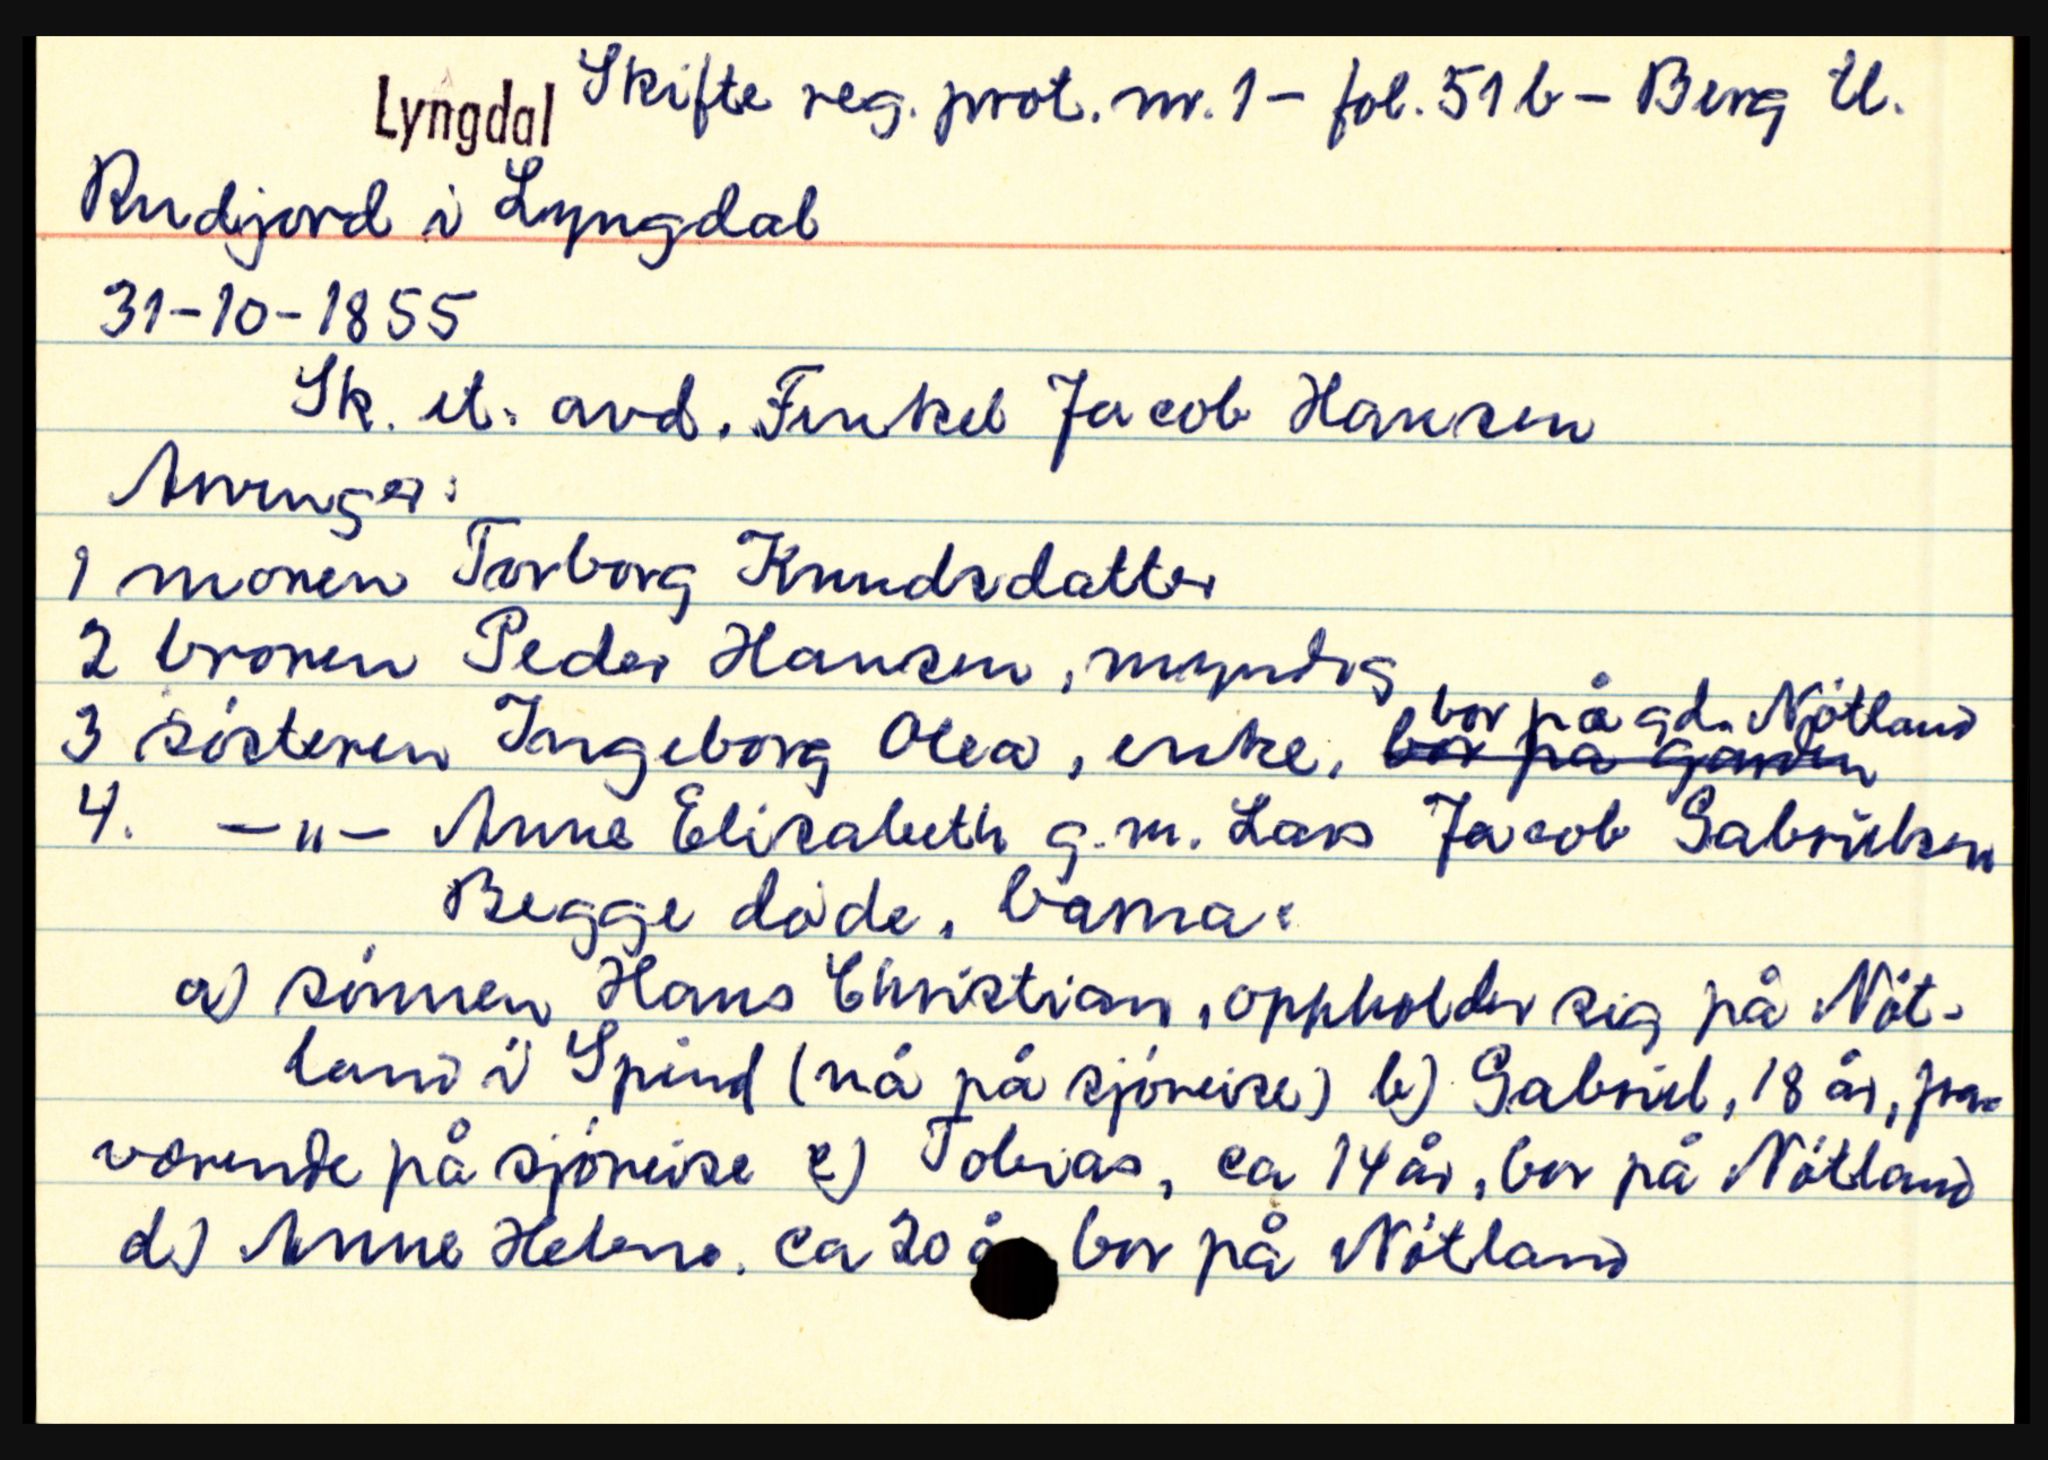 Lyngdal Skifte reg. prot. nr. 1 - fol. 51 b - Berg
Rudjord i Lyngdal
31-10-1855
Sk. et. avd. Fenkel Jacob Hansen
Arvinger:
1 moren Torborg Knudsdatter
2 broren Peder Hansen, myndig
bor på gd. Nötland
3 søsteren Ingeborg Olea, enke, bor på garden
4. -"- Anne Elisabeth g.m. Lars Jacob Gabrielsen
Begge døde, barna:
a) sønnen Hans Christian, oppholder sig på Nöt-
land i Spind (nå på sjöreise) b) Gabriel, 18 år, fra-
værende på sjöreise c) Tobias, ca 14 år, bor på Nötland
d) Anne Helene, ca 20 år bor på Nötland